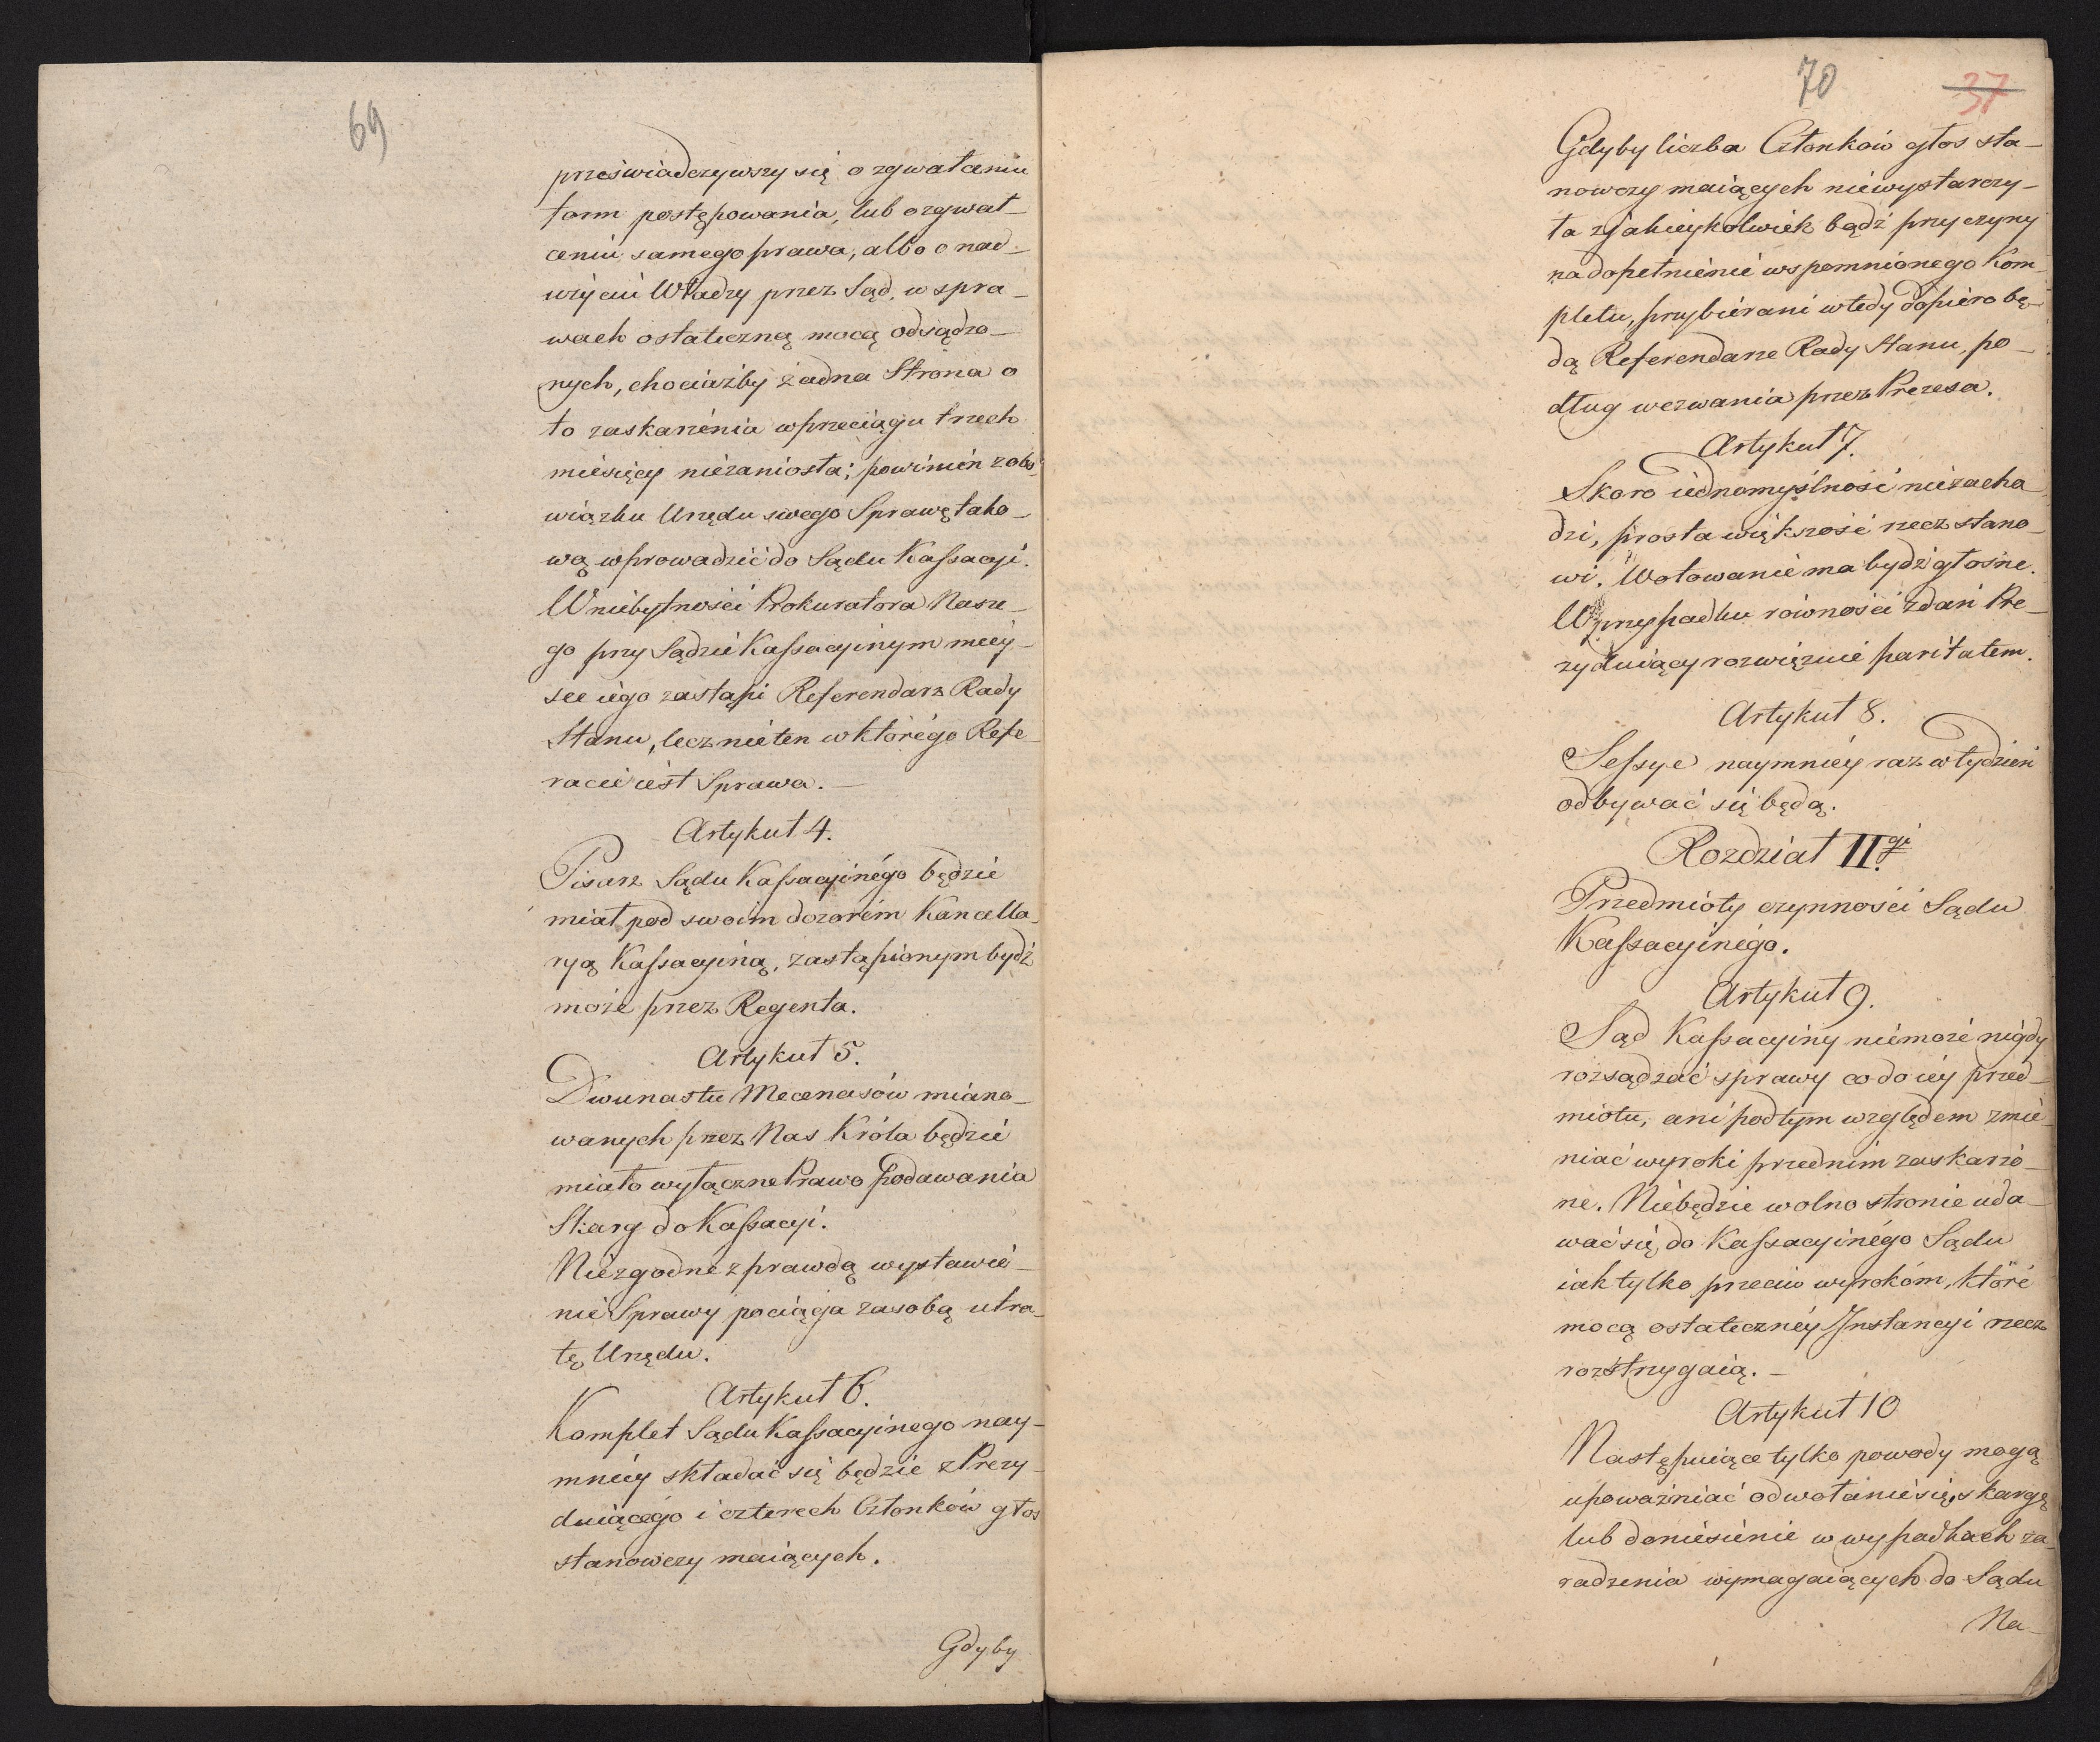 69
przeświadczywszy się o zgwałceniu
form postępowania, lub o zgwał-
ceniu samego prawa, albo o nad-
użyciu Władzy przez Sąd, w spra-
wach ostateczną mocą odsądzo-
nych, chociażby żadna Strona o
to zaskarżenia w przeciągu trzech
miesięcy niezaniosła; powinien z obo-
wiązku Urzędu swego Sprawę tako-
wą wprowadzić do Sądu Kassacyi.
W niebytności Prokuratora Nasze-
go przy Sądzie Kassacyinym miey-
sce iego zastąpi Referendarz Rady
Stanu, lecz nie ten w którégo Refe-
racie iest Sprawa.—
Artykuł 4.
Pisarz Sądu Kassacyinégo będzie
miał pod swoim dozorém Kancella-
ryą Kassacyiną, zastąpionym bydź
może przez Regenta.
Artykuł 5.
Dwunastu Mecenasów miano-
wanych przez Nas Króla będzie
miało wyłączne Prawo podawania
Skarg do Kassacyi.
Niezgodne z prawdą wystawie-
nie Sprawy pociąga za sobą utra-
tę Urzędu.
Artykuł 6.
Komplet Sądu Kassacyinego nay-
mniéy składać się będzie z Prezy-
duiącégo i czterech Członków głos
stanowczy maiących.
Gdyby
70
37
Gdyby liczba Członków głos sta-
nowczy maiących niewystarczy-
ła z jakieykolwiek bądź przyczyny
na dopełnienie wspomnionego Kom-
pletu, przybierani wtedy dopiero bę-
dą Referendarze Rady Stanu po-
dług wezwania przez Prezesa.
Artykuł 7.
Skoro iednomyślność niezacho-
dzi, prosta większość rzecz stano-
wi. Wotowanie ma bydź głośne.
W przypadku równości zdań Pre-
zyduiący rozwiązuie paritatem.
Artykuł 8.
Sessye naymniéy raz w tydzień
odbywać się będą.
Rozdział II.gi
Przedmioty czynności Sądu
Kassacyinégo.
Artykuł 9.
Sąd Kassacyiny niemoże nigdy
rozsądzać sprawy co do iéy przed-
miotu, ani pod tym względem zmie-
niać wyroki przed nim zaskarżo-
ne. Niebędzie wolno stronie uda-
wać się do Kassacyinégo Sądu
iak tylko przeciw wyrokóm, któré
mocą ostatecznéy Instancyi rzecz
rozstrzygaią.—
Artykuł 10
Następuiące tylko powody mogą
upoważniać odwołanie się, skargę
lub doniesienie w wypadkach za-
radzenia wymagaiących do Sądu
Na-